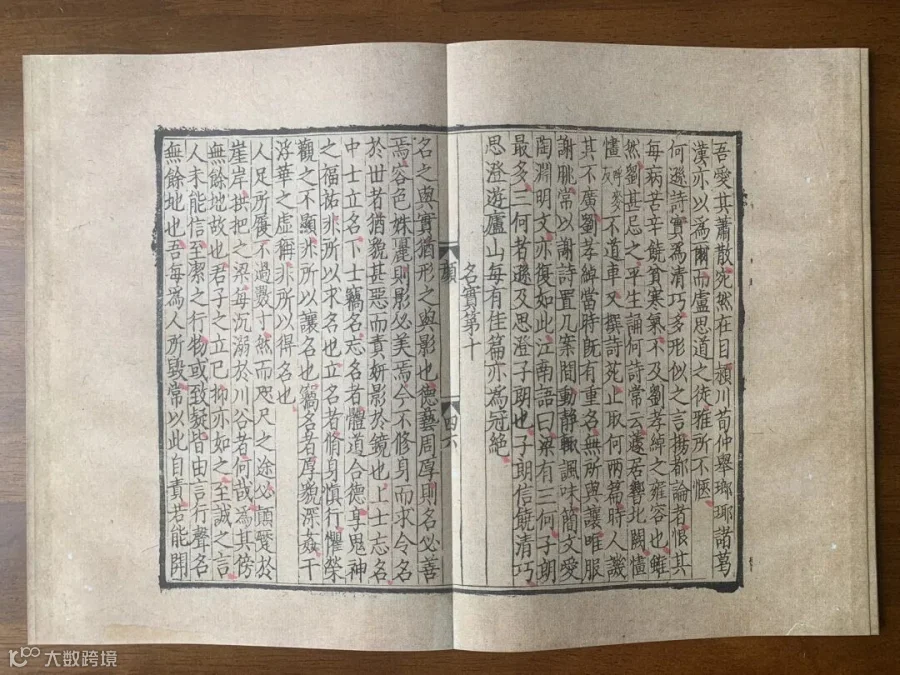 吾愛其蕭散宛然在目潁川荀仲舉瑯琊諸葛
漢亦以爲爾而盧思道之徒雅所不愜
何遜詩實爲清巧多形似之言揚都論者恨其
每病苦辛饒貧寒氣不及劉孝綽之雍容也雖
然劉甚忌之平生誦何詩常云蘧居響北闕㦎
㦎呼麥反不道車又撰詩苑止取何兩篇時人譏
其不廣劉孝綽當時既有重名無所與讓唯服
謝朓常以謝詩置几案間動靜輒諷味簡文愛
陶淵明文亦復如此江南語曰梁有三何子朗
最多三何者遜及思澄子朗也子朗信饒清巧
思澄遊廬山每有佳篇亦爲冠絶
名實第十
顔 四六
名之與實猶形之與影也德藝周厚則名必善
焉容色姝麗則影必美焉今不修身而求令名
於世者猶貌甚惡而責妍影於鏡也上士忘名
中士立名下士竊名忘名者體道合德享鬼神
之福祐非所以求名也立名者脩身慎行懼榮
觀之不顯非所以讓名也竊名者厚貌深姦干
浮華之虛稱非所以得名也
人足所履不過數寸然而咫尺之途必顛蹶於
崖岸拱把之梁每沉溺於川谷者何哉爲其傍
無餘地故也君子之立己抑亦如之至誠之言
人未能信至潔之行物或致疑皆由言行聲名
無餘地也吾每爲人所毀常以此自責若能開
大数跨境